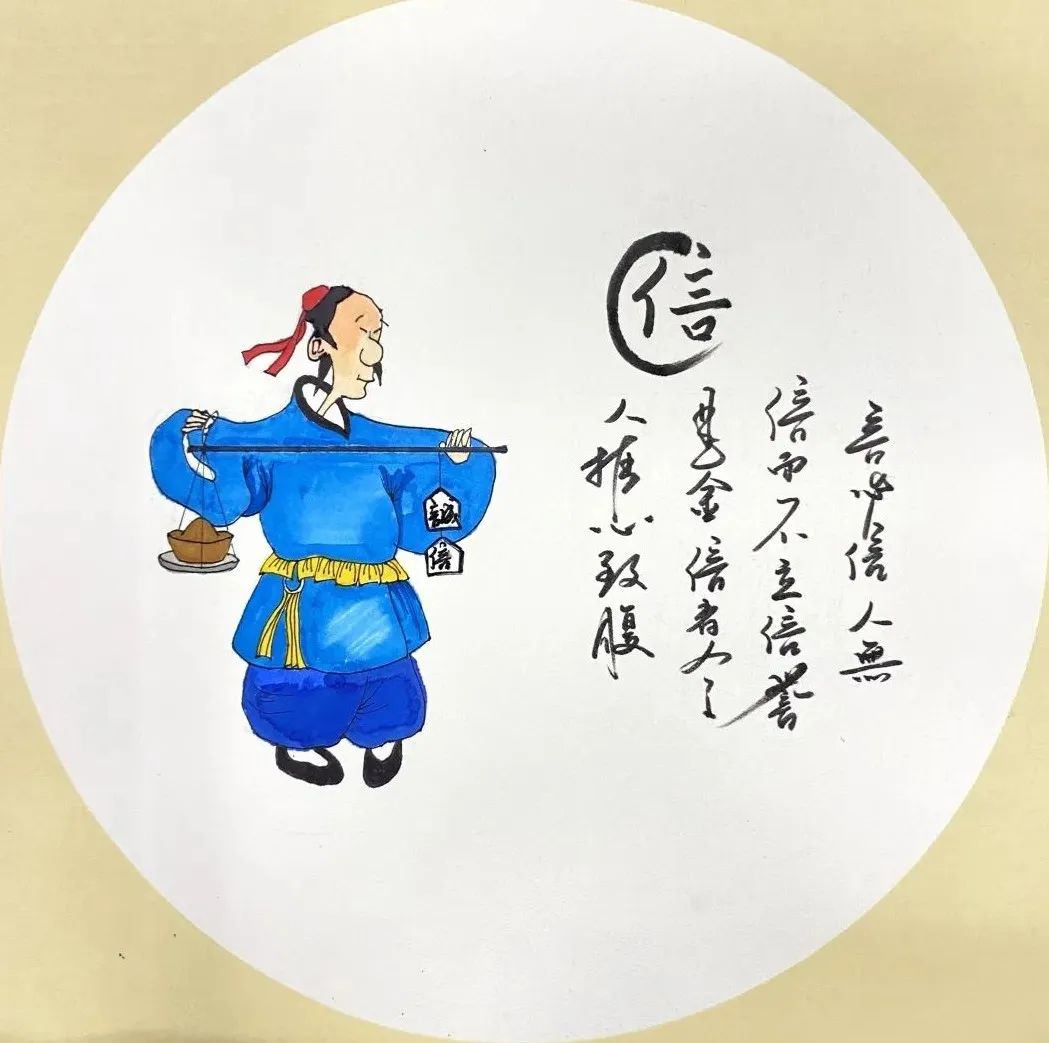 信
言必信人無
信而不立信譽
金信者
人推心致腹
誠
信